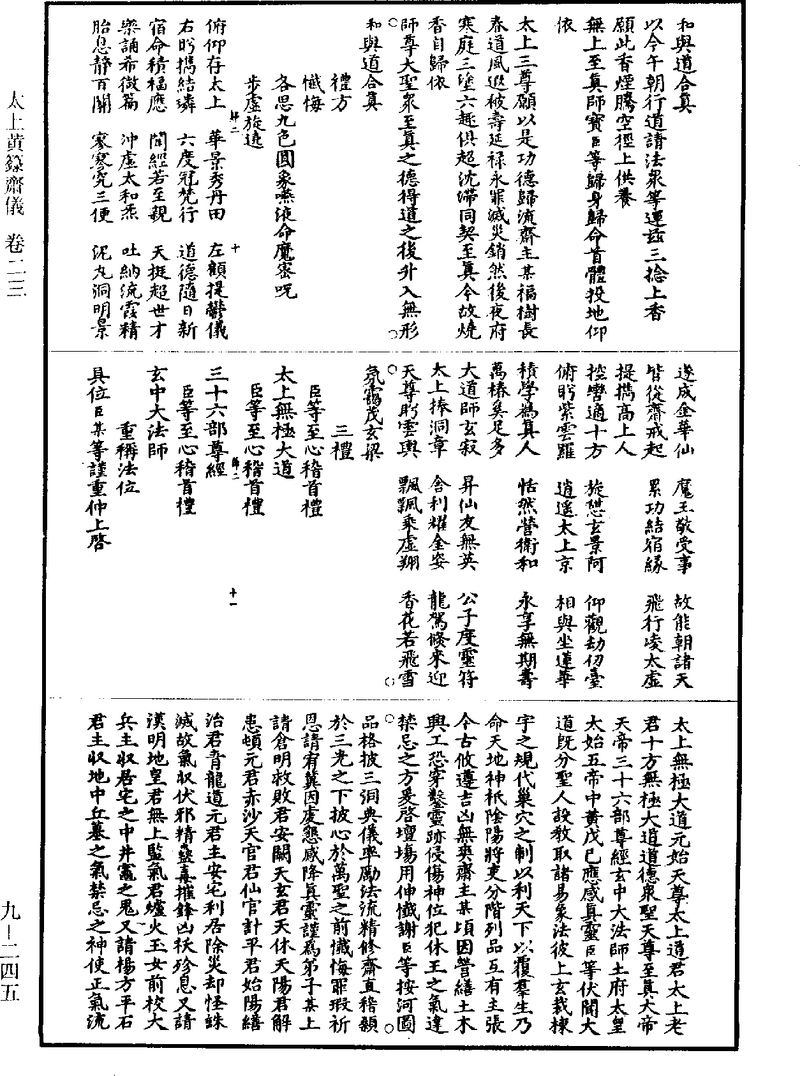 太上黄籙齋儀　卷二三
九—二四五
和與道合真
以今午朝行道請法衆等運茲三捻上香
願此香煙騰空徑上供養
無上至真師寶臣等歸身歸命首體投地仰
依
太上三尊願以是功德歸流齋主某福樹長
春道風遐被壽延禄永罪滅災銷然後夜府
寒庭三塗六趣俱超沈滯同契至真今故燒
香自歸依
師尊大聖衆至真之德得道之後升入無形
和與道合真
禮方
懺悔
各思九色圓象嚥液命魔密呪
步虛旋遶
俯仰存太上　華景秀丹田　左顧提鬱儀
右眄攜結璘　六度冠梵行　道德隨日新
宿命積福應　聞經若至親　天挺超世才
樂誦希微篇　沖虛太和炁　吐納流霞精
胎息静百關　寥寥究三便　泥丸洞明景
遂成金華仙　魔王敬受事　故能朝諸天
皆從齋戒起　累功結宿緣　飛行凌太虛
提攜高上人
控轡適十方　旋憩玄景阿　仰觀劫仞臺
俯眄紫雲羅　逍遥太上京　相與坐蓮華
積學爲真人　恬然營衛和　永享無期壽
萬椿奚足多
大道師玄寂　昇仙友無英　公子度靈符
太上捧洞章　舍利耀金姿　龍駕倏來迎
天尊眄雲輿　飄飄乘虛翔　香花若飛雪
氛靄茂玄梁
三禮
臣等至心稽首禮
太上無極大道
臣等至心稽首禮
三十六部尊經
臣等至心稽首禮
玄中大法師
重稱法位
具位臣某等謹重伸上啓
太上無極大道元始天尊太上道君太上老
君十方無極大道道德衆聖天尊至真大帝
天帝三十六部尊經玄中大法師土府太皇
太始五帝中黄戊己應感真靈臣等伏聞大
道既分聖人設教取諸易象法彼上玄裁棟
宇之規代巢穴之制以利天下以覆羣生乃
命天地神祇陰陽將吏分階列品互有主張
今古攸遵吉凶無爽齋主某頃因營繕土木
興工恐穿鑿靈跡侵傷神位犯休王之氣違
禁忌之方爰啓壇場用伸懺謝臣等按河圖
品格披三洞典儀率勵法流精修齋直稽顙
於三光之下披心於萬聖之前懺悔罪瑕祈
恩請宥冀因虔懇感降真靈謹爲弟子某上
請倉明救敗君安闕天玄君天休天陽君解
患頓元君赤沙天官君仙官計平君始陽繕
治君青龍道元君主安宅利居除災却怪誅
滅故氣收伏邪精蠱毒摧鋒凶袄殄息又請
漢明地皇君無上監氣君爐火玉女前校大
兵主收居宅之中井竈之鬼又請楊方平石
君主收地中丘墓之氣禁忌之神使正氣流